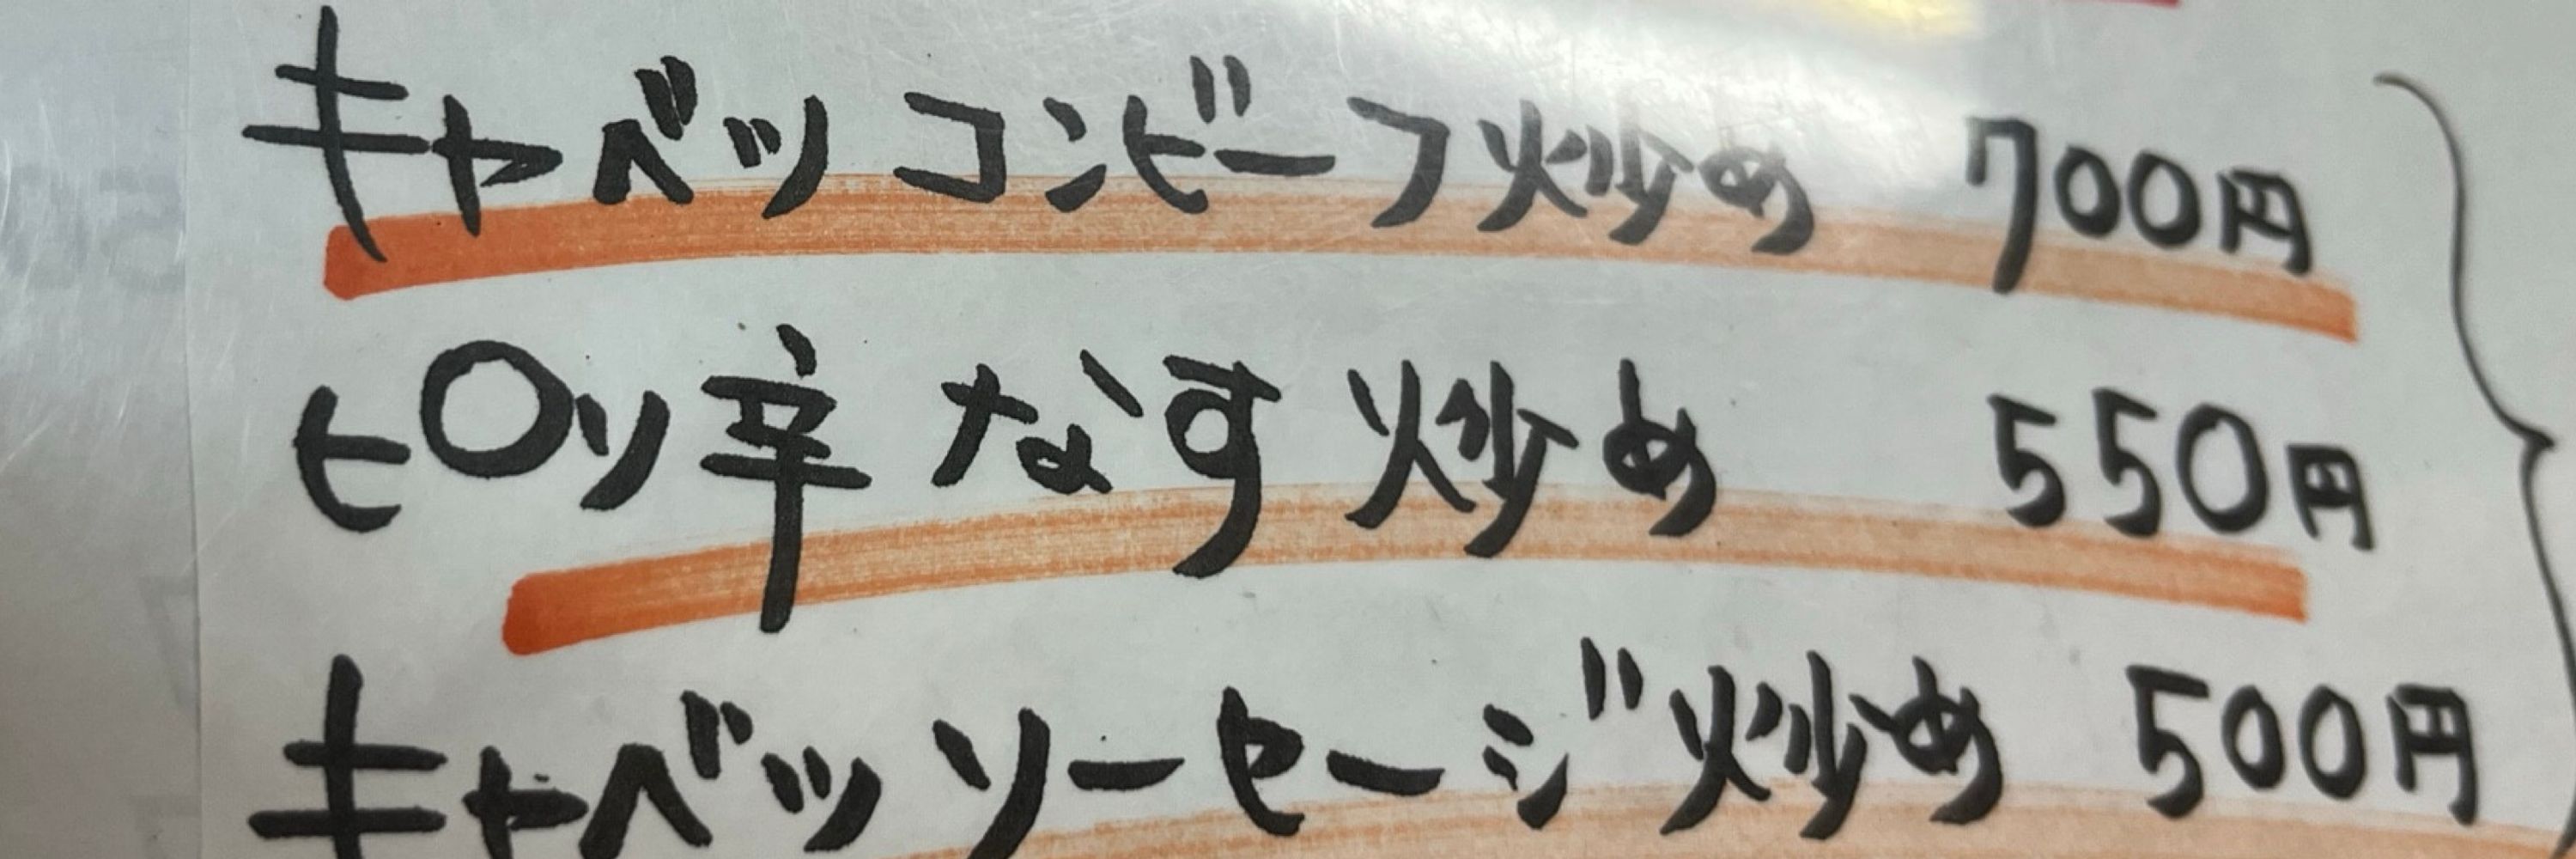 キャベツ コンビーフ炒め 700円
ピリ辛 なす 炒め 550円
キャベツ ソーセージ炒め 500円